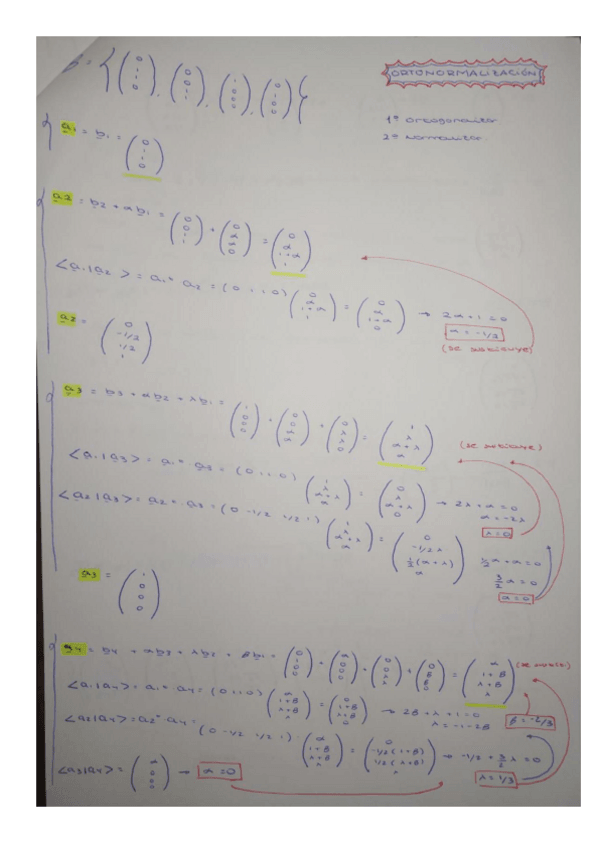 B = { (0 1 1 0), (0 0 1 1), (1 0 0 0), (0 1 0 0) }
ORTONORMALIZACIÓN
1º ortogonalizar
2º normalizar
a1 = b1 = (0 1 1 0)
a2 = b2 + αb1 = (0 0 1 1) + (0 α α 0) = (0 α 1+α 1)
<a1|a2> = a1⁺ a2 = (0 1 1 0) (0 α 1+α 1) = (0 α 1+α 0) → 2α+1 = 0
α = -1/2
(se sustituye)
a2 = (0 -1/2 1/2 1)
a3 = b3 + αb2 + λb1 = (1 0 0 0) + (0 0 α α) + (0 λ λ 0) = (1 λ α+λ α)
(se sustituye)
<a1|a3> = a1⁺ a3 = (0 1 1 0) (1 λ α+λ α) = (0 λ α+λ 0) → 2λ+α = 0
α = -2λ
λ = 0
<a2|a3> = a2⁺ a3 = (0 -1/2 1/2 1) (1 λ α+λ α) = (0 -1/2 λ 1/2(α+λ) α)
1/2 α + α = 0
3/2 α = 0
α = 0
a3 = (1 0 0 0)
a4 = b4 + αb3 + λb2 + βb1 = (0 1 0 0) + (α 0 0 0) + (0 0 λ λ) + (0 β β 0) = (α 1+β λ+β λ)
<a1|a4> = a1⁺ a4 = (0 1 1 0) (α 1+β λ+β λ) = (0 1+β λ+β 0) → 2β + λ + 1 = 0
λ = -1-2β
β = -2/3
<a2|a4> = a2⁺ a4 = (0 -1/2 1/2 1) · (α 1+β λ+β λ) = (0 -1/2(1+β) 1/2(λ+β) λ) → -1/2 + 3/2 λ = 0
λ = 1/3
<a3|a4> = (α 0 0 0) → α = 0